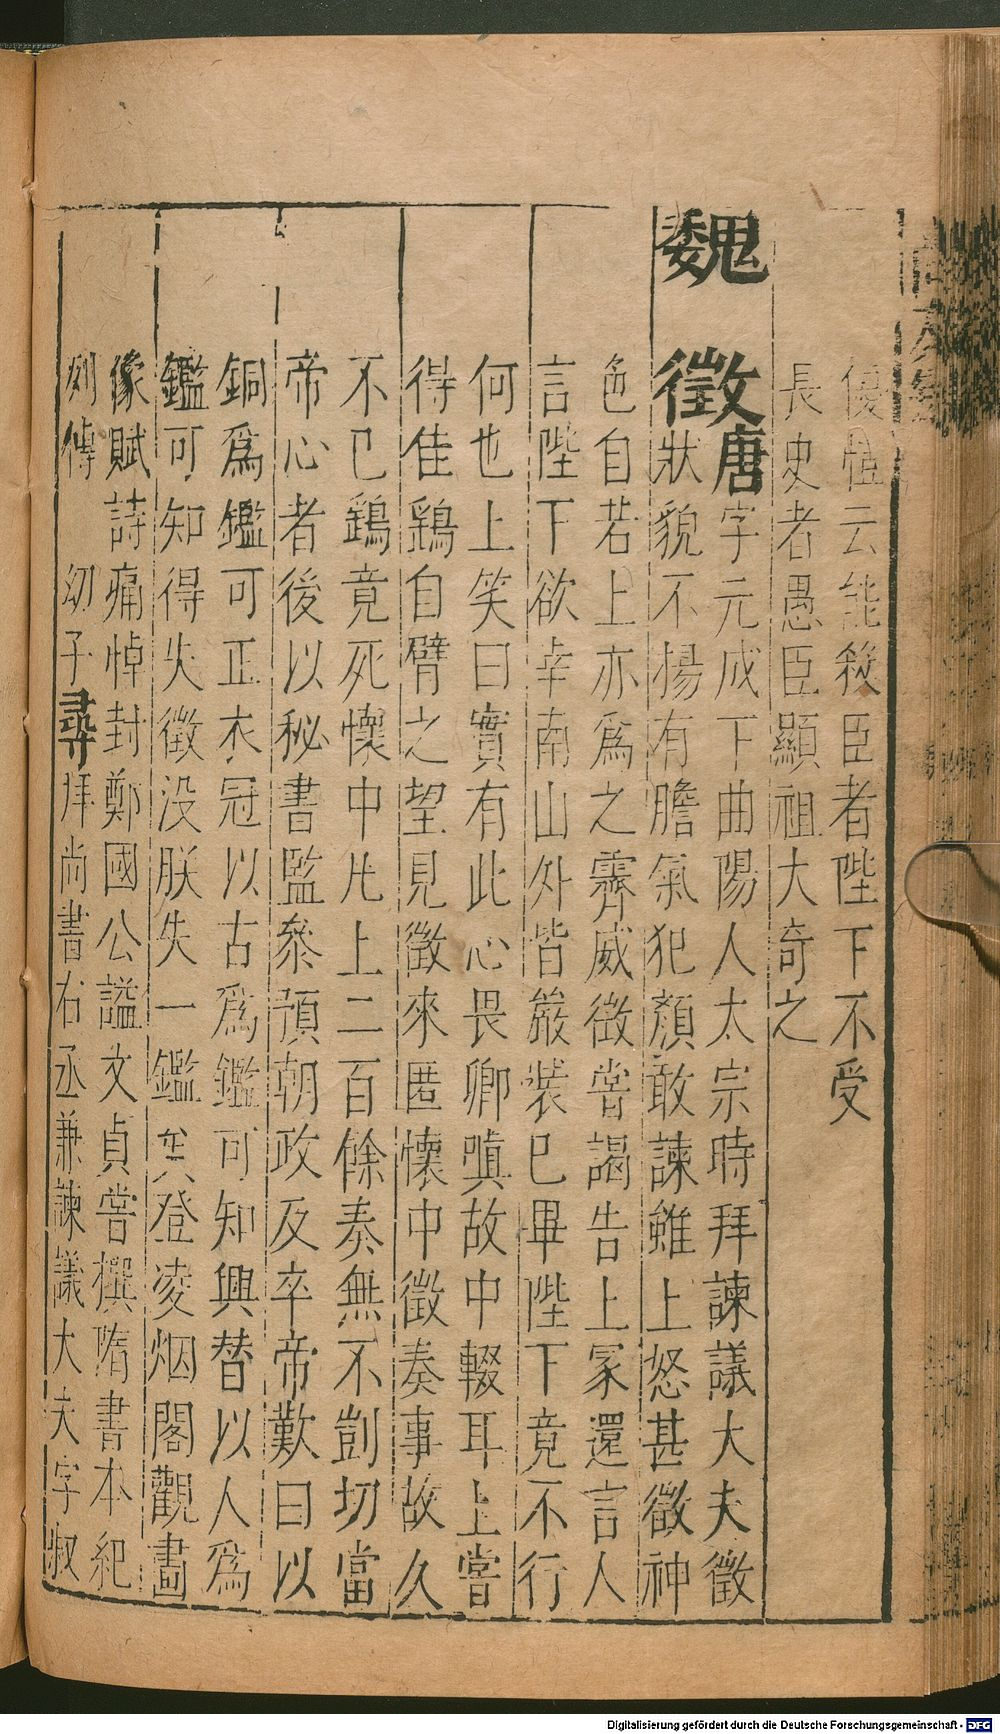 優恤云能殺臣者陛下不受
長史者愚臣顯祖大奇之
魏徵唐字元成下曲陽人太宗時拜諫議大夫徵
狀貌不揚有膽氣犯顏敢諫雖上怒甚徵神
色自若上亦爲之霽威徵嘗謁告上冢還言人
言陛下欲幸南山外皆嚴裝已畢陛下竟不行
何也上笑曰實有此心畏卿嗔故中輟耳上嘗
得佳鷂自臂之望見徵來匿懷中徵奏事故久
不已鷂竟死懷中凡上二百餘奏無不剴切當
帝心者後以秘書監參預朝政及卒帝歎曰以
銅爲鑑可正衣冠以古爲鑑可知興替以人爲
鑑可知得失徵没朕失一鑑矣登凌烟閣觀畫
像賦詩痛悼封鄭國公謚文貞嘗撰隋書本紀
列傳 幼子尋拜尚書右丞兼諫議大夫字叔
Digitalisierung gefördert durch die Deutsche Forschungsgemeinschaft - DFG